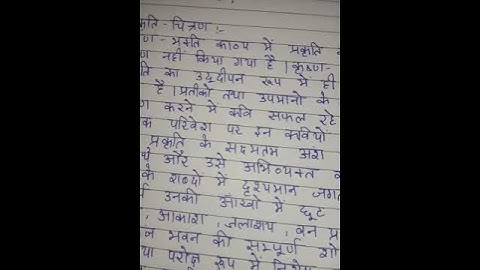 कृति - चित्रण :-
ण - भक्ति काव्य में प्रकृति
ण नहीं किया गया है । कृष्ण-
ति का उद्दीपन रूप में ही
है । प्रतीको तथा उपमानो के
ण करने में कवि सफल रहे
क परिवेश पर इन कवियों
प्रकृति के सूक्ष्मतम अंश
थे और उसे अभिव्यक्त
के शब्दों में दृश्यमान जगत
उनकी आंखो में छूट
, आकाश, जलाशय, वन प्र
भवन की सम्पूर्ण शो
था परोक्ष रूप में